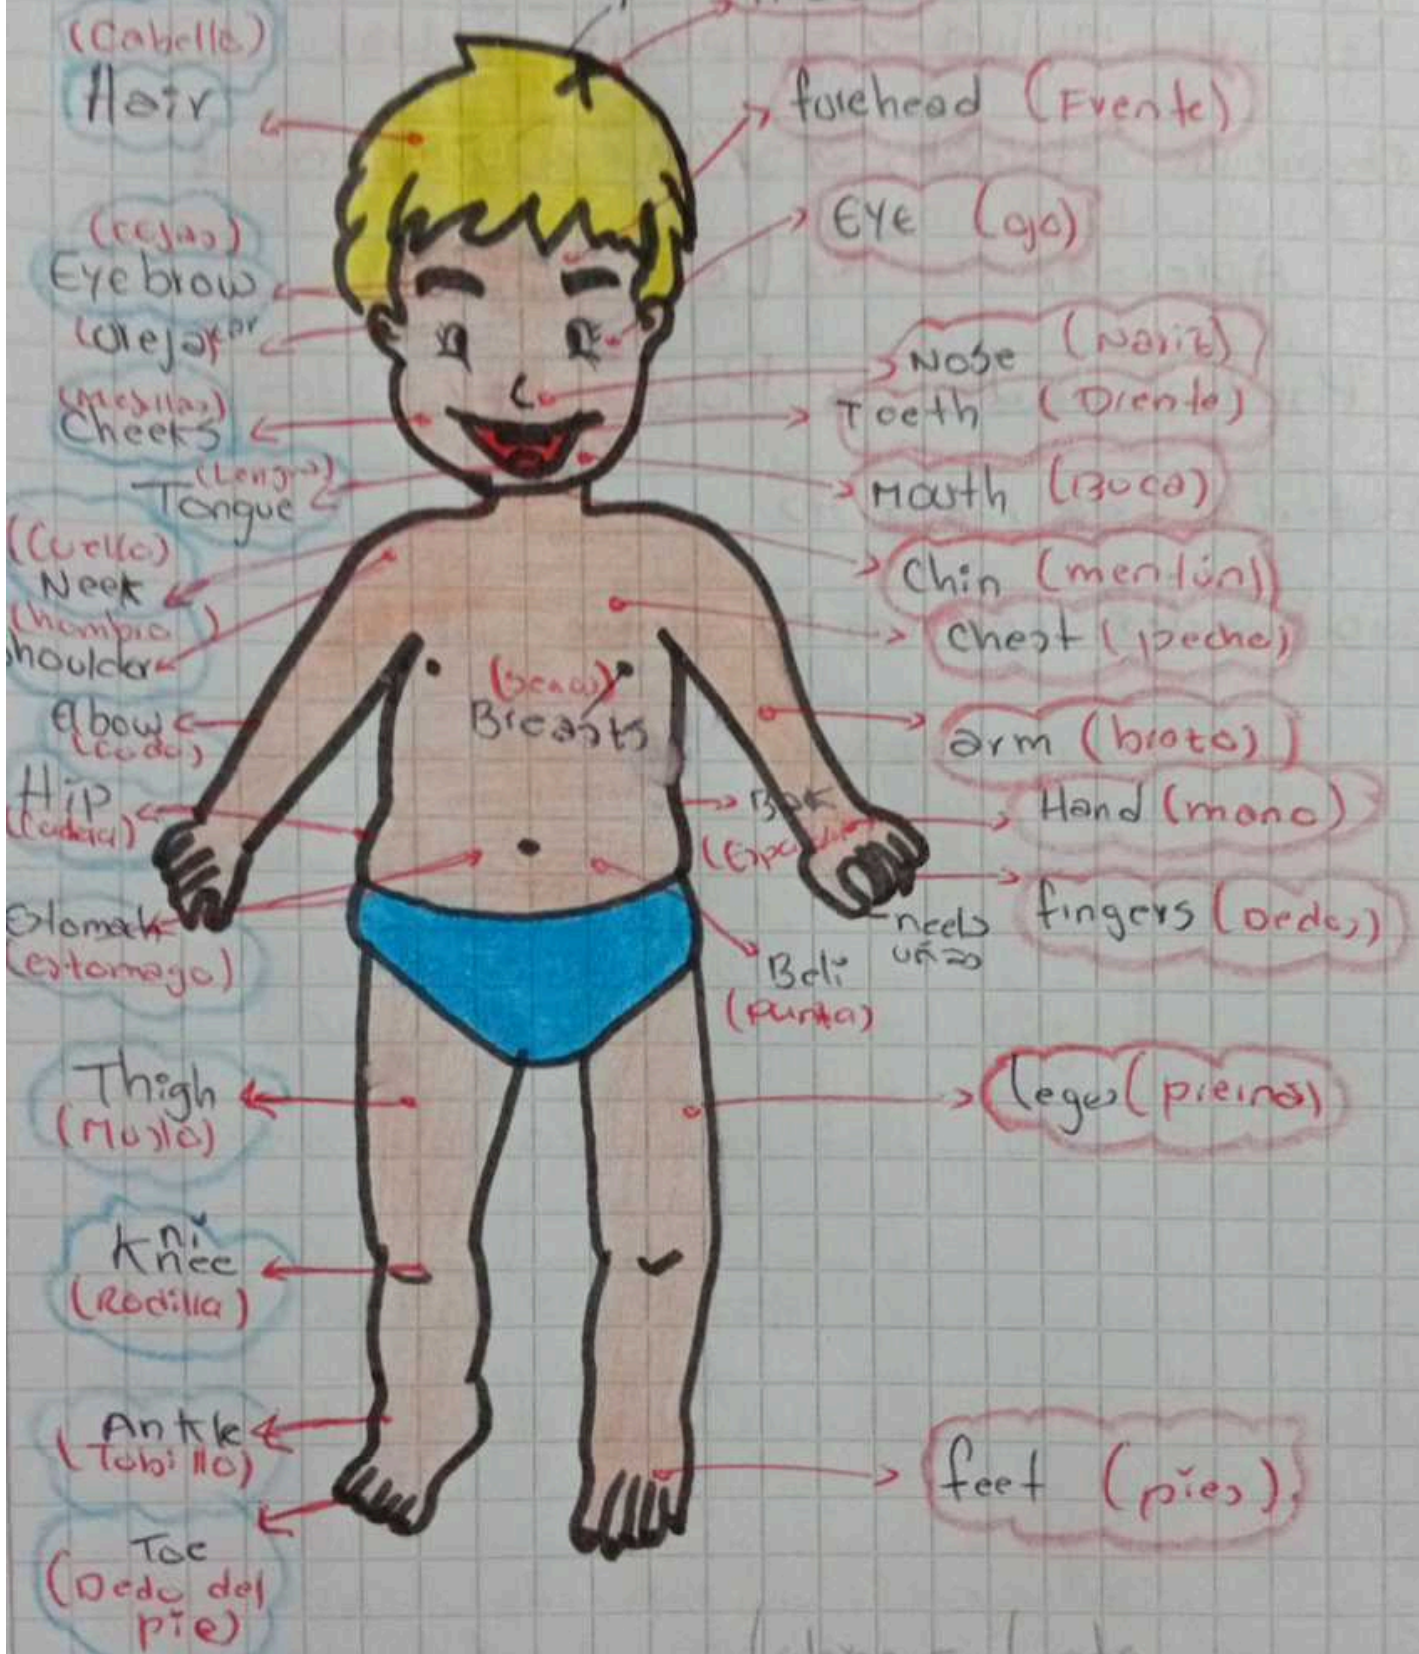 (Cabello)
Hair
(cejas)
Eyebrow
(Oreja)
(Mejillas)
Cheeks
(Lengua)
Tongue
(Cuello)
Neek
(hombro)
Shoulder
Elbow
(codo)
Hip
(cadera)
Stomack
(estomago)
Thigh
(Muslo)
ni
Knee
(Rodilla)
Ankle
(Tobillo)
Toe
(Dedo del
pie)
(senos)
Breasts
forehead (Frente)
EYE (ojo)
Nose (Nariz)
Teeth (Diente)
Mouth (Boca)
Chin (mentón)
Chest (pecho)
arm (brazo)
Hand (mano)
fingers (Dedos)
neels
uñas
Beli
legs (piernas)
feet (pies)